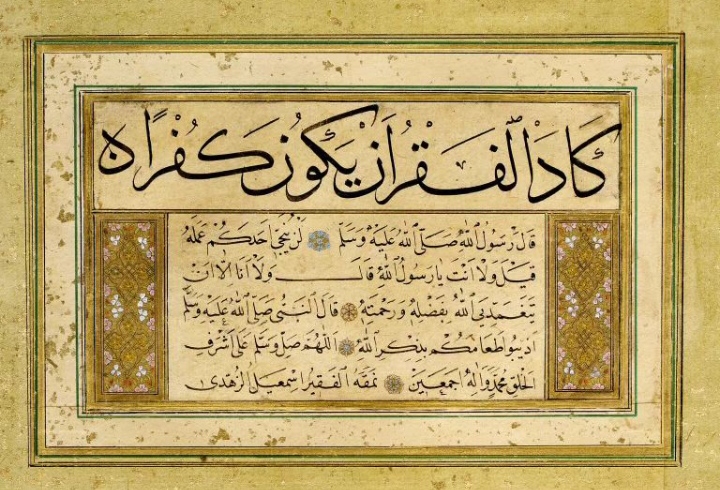 كَادَ الْفَقْرُ اَنْ يَكُونَ كُفْرًا
قَالَ رَسُولُ اللّٰهِ صَلَّى اللّٰهُ عَلَيْهِ وَسَلَّمَ لَنْ يُنْجِيَ اَحَدَكُمْ عَمَلُهُ
قِيلَ وَلَا اَنْتَ يَا رَسُولَ اللّٰهِ قَالَ وَلَا اَنَا اِلَّا اَنْ
يَتَغَمَّدَنِيَ اللّٰهُ بِفَضْلِهِ وَرَحْمَتِهِ قَالَ النَّبِيُّ صَلَّى اللّٰهُ عَلَيْهِ وَسَلَّمَ
اَذِيبُوا طَعَامَكُمْ بِذِكْرِ اللّٰهِ اَللّٰهُمَّ صَلِّ وَسَلِّمْ عَلَى اَشْرَفِ
الْخَلْقِ مُحَمَّدٍ وَاٰلِهِ اَجْمَعِينَ نمقه الفقير اسمعيل الزهدى